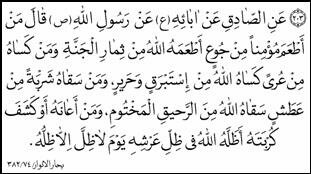 (٢٠٣) عَنِ الصَّادِقِ عَنْ ابَائِهِ (ع) عَنْ رَسُولِ اللهِ (ص) قَالَ مَنْ
أَطْعَمَ مُؤْمِناً مِنْ جُوعٍ أَطْعَمَهُ اللهُ مِنْ ثِمَارِ الْجَنَّةِ وَمَنْ كَسَاهُ
مِنْ عُرىً كَسَاهُ اللهُ مِنْ إِسْتَبْرَقٍ وَحَرِيرٍ، وَمَنْ سَقَاهُ شَرْبَةً مِنْ
عَطَشٍ سَقَاهُ اللهُ مِنَ الرَّحِيقِ الْمَخْتُومِ، وَمَنْ أَعَانَهُ أَوْ كَشَفَ
كُرْبَتَهُ أَظَلَّهُ اللهُ فى ظِلِّ عَرْشِهِ يَوْمَ لَاظِلَّ اِلَّاظِلُّهُ.
بحار الانوار: ٣٨٢/٧٤